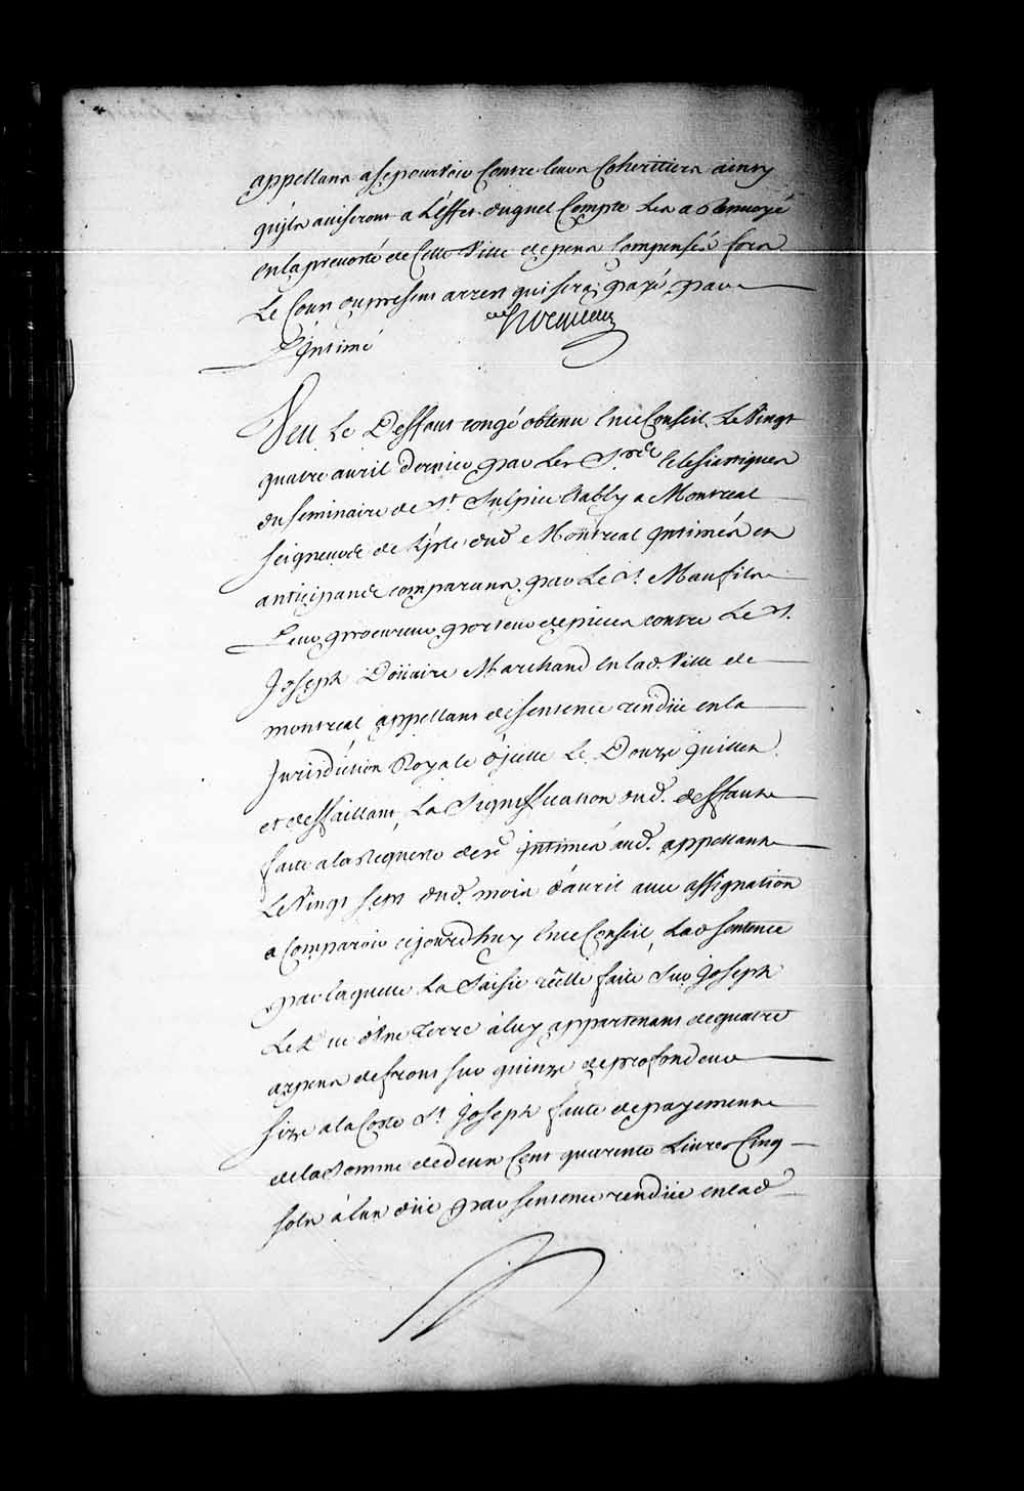 appellans a se pourvoir Contre leurs Coheritiers ainsy
quils aviseront a L'effet duquel Compte Les a Renvoyé
en la prevosté de Cette Ville depens Compensés fors
Le Cout du present arrest qui sera payé par
L'Intimé
Veu Le Deffaut congé obtenu en ce Conseil Le Vingt
quatre avril dernier par Les Srs Eclesiastiques
du seminaire de St. Sulpice Etably a Montreal
seigneurs de L'isle dud Montreal Intimés en
anticipant comparans par Le Sr.
Leur procureur porteur de pieces contre Le Sr.
Joseph Doüaire Marchand en lad Ville de
montreal appellant de sentence rendüe en la
Jurisdiction Royale d'jcelle Le Douze juillet
et deffaillant, La Signiffication dud. deffaut
faite a la Requeste desd Intimés aud. appellant
Le Vingt sept dud. mois d'avril avec assignation
a Comparoir cejourdhuy en ce Conseil, Lad sentence
par laquelle La Saisie réelle faite sur Joseph
d'Une Terre à luy appartenant de quatre
arpens de front sur quinze de profondeur
size a la Coste St. Joseph faute de payement
de la Somme de deux Cent quarente Livres Cinq
sols à luy düe par sentence rendüe en lad